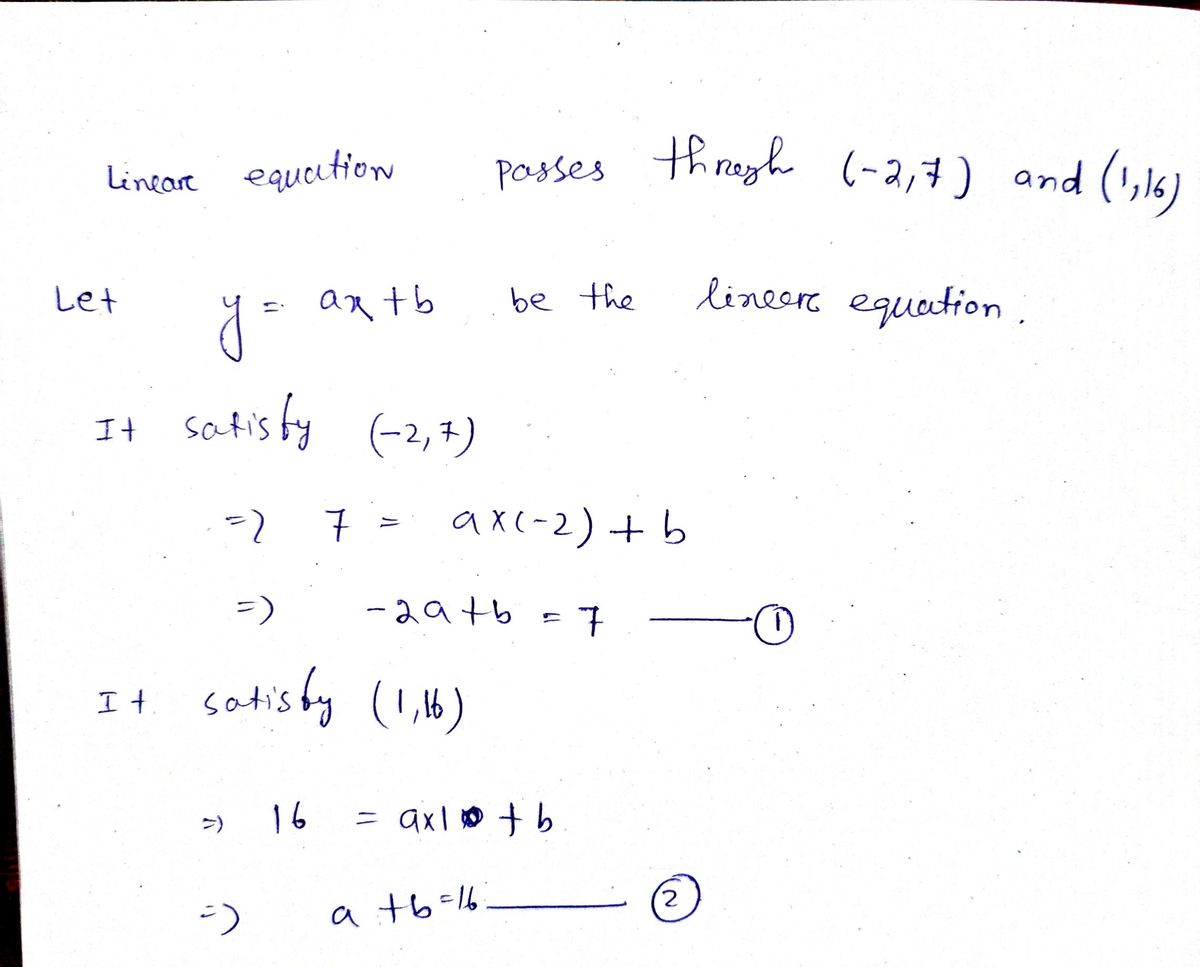 Linear equation passes through (-2,7) and (1,16)
Let y = ax + b be the linear equation.
It satisfy (-2,7)
=> 7 = a×(-2) + b
=> -2a + b = 7 —— ①
It satisfy (1,16)
=> 16 = a×1 + b
=> a + b = 16 —— ②